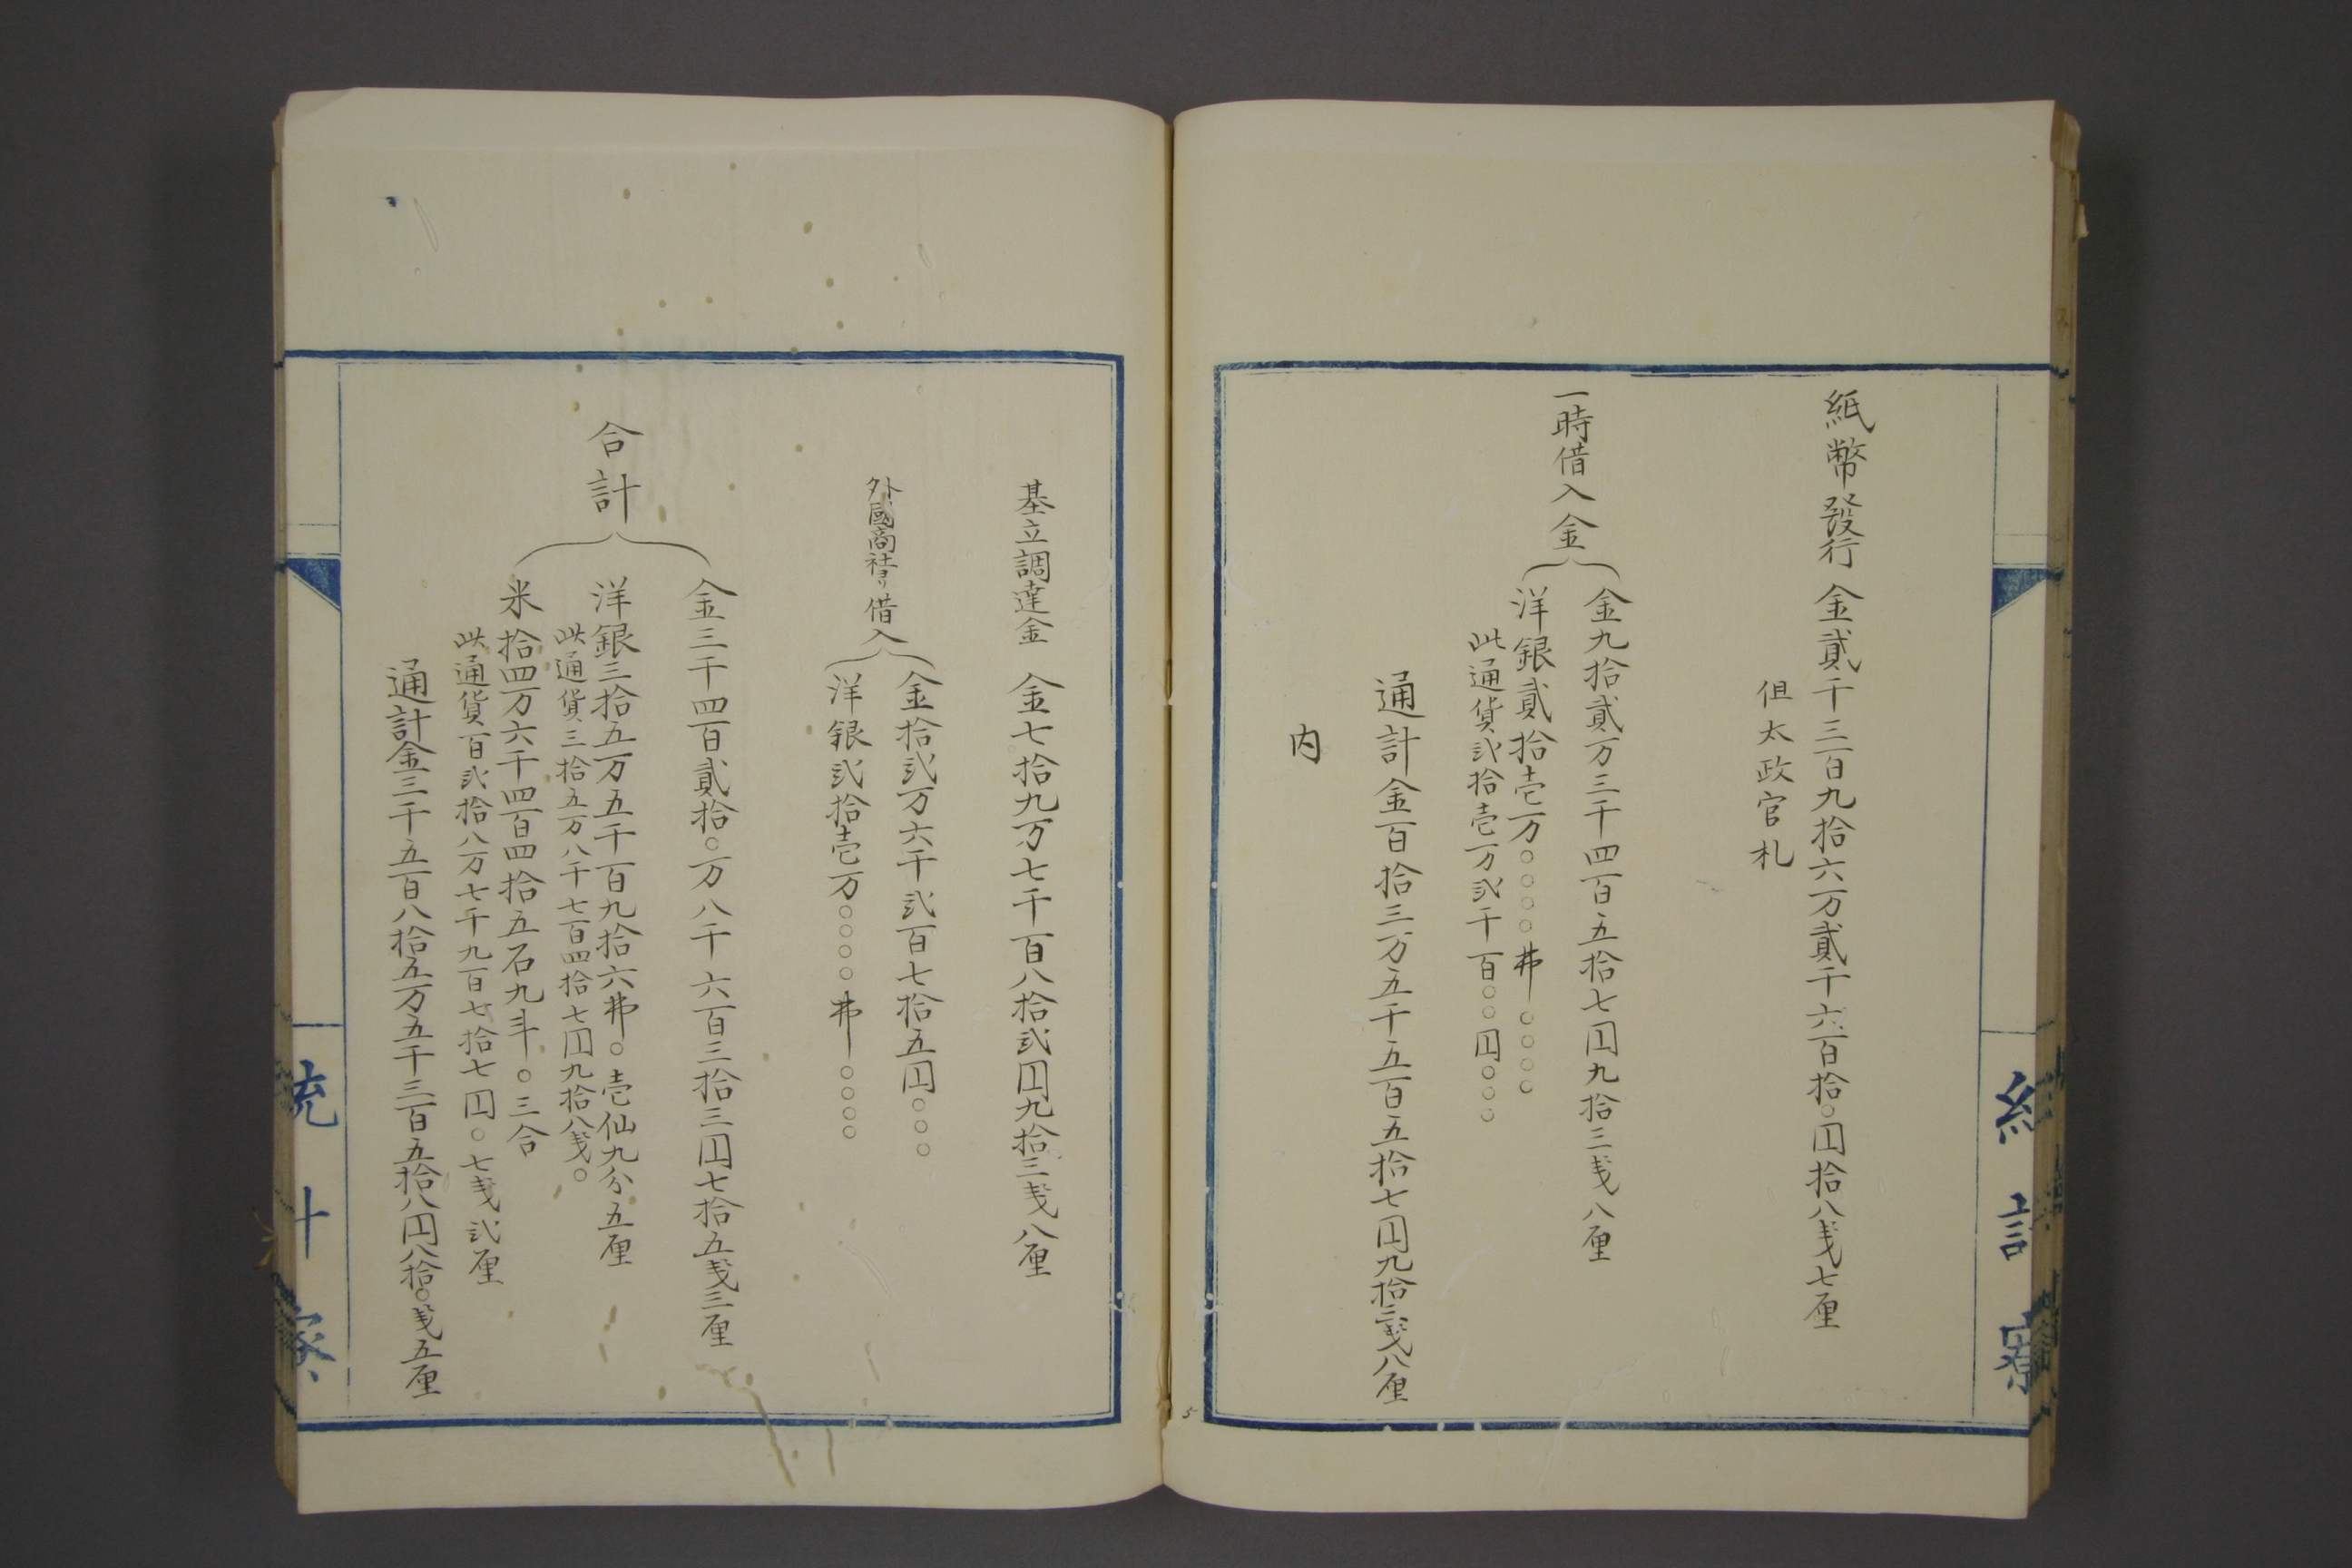 紙幣發行 金貳千三百九拾六万貳千六百拾○円拾八戔七厘
但太政官札
一時借入金
金九拾貳万三千四百五拾七円九拾三戔八厘
洋銀貳拾壱万○○○○弗○○○○
此通貨弐拾壱万弐千百○○円○○○
通計金百拾三万五千五百五拾七円九拾三戔八厘
内
基立調達金 金七拾九万七千百八拾弐円九拾三戔八厘
外國商社ヨリ借入
金拾弐万六千弐百七拾五円○○○
洋銀弐拾壱万○○○○弗○○○○
合計
金三千四百貳拾○万八千六百三拾三円七拾五戔三厘
洋銀三拾五万五千百九拾六弗○壱仙九分五厘
此通貨三拾五万八千七百四拾七円九拾八戔○
米拾四万六千四百四拾五石九斗○三合
此通貨百弐拾八万七千九百七拾七円○七戔弐厘
通計金三千五百八拾五万五千三百五拾八円八拾○戔五厘
統計寮